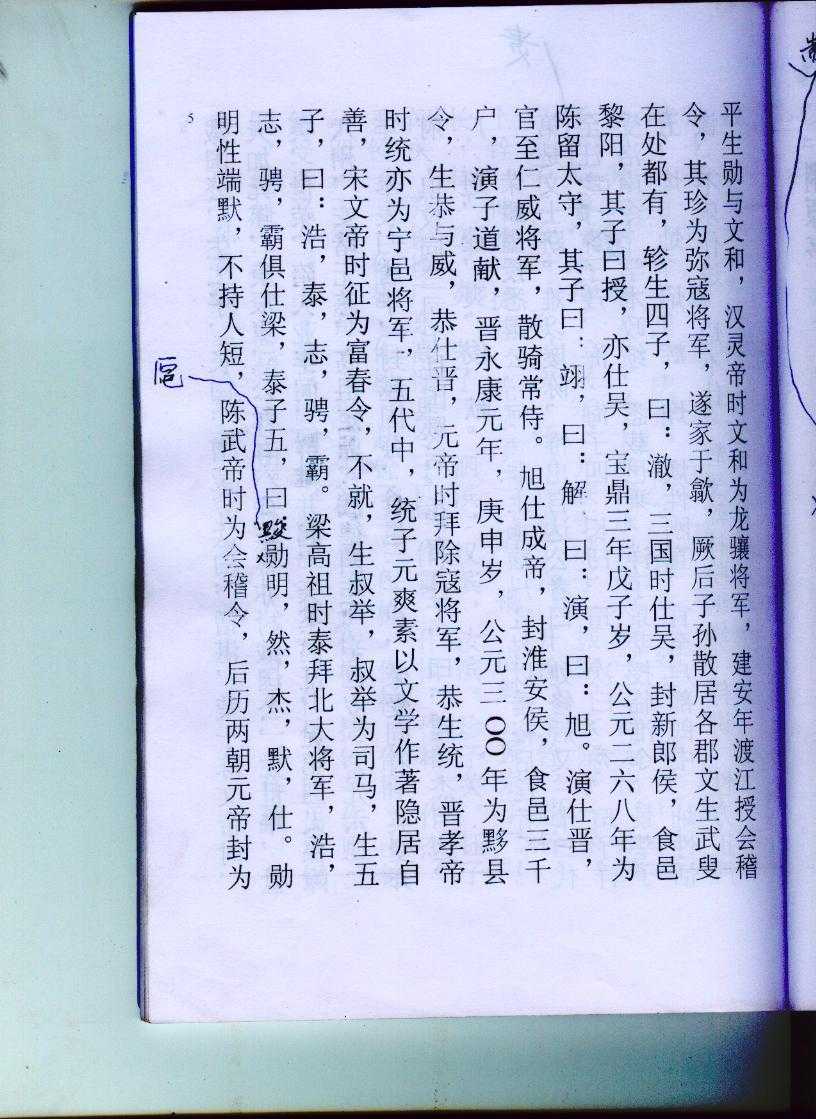 平生勋与文和，汉灵帝时文和为龙骧将军，建安年渡江授会稽
令，其珍为弥寇将军，遂家于歙，厥后子孙散居各郡文生武叟
在处都有，轸生四子，曰：澈，三国时仕吴，封新郎侯，食邑
黎阳，其子曰授，亦仕吴，宝鼎三年戊子岁，公元二六八年为
陈留太守，其子曰：翊，曰：解，曰：演，曰：旭。演仕晋，
官至仁威将军，散骑常侍。旭仕成帝，封淮安侯，食邑三千
户，演子道献，晋永康元年，庚申岁，公元三〇〇年为黟县
令，生恭与威，恭仕晋，元帝时拜除寇将军，恭生统，晋孝帝
时统亦为宁邑将军，五代中，统子元爽素以文学作著隐居自
善，宋文帝时征为富春令，不就，生叔举，叔举为司马，生五
子，曰：浩，泰，志，骋，霸。梁高祖时泰拜北大将军，浩，
志，骋，霸俱仕梁，泰子五，曰勋明，然，杰，默，仕。勋
明性端默，不持人短，陈武帝时为会稽令，后历两朝元帝封为
5